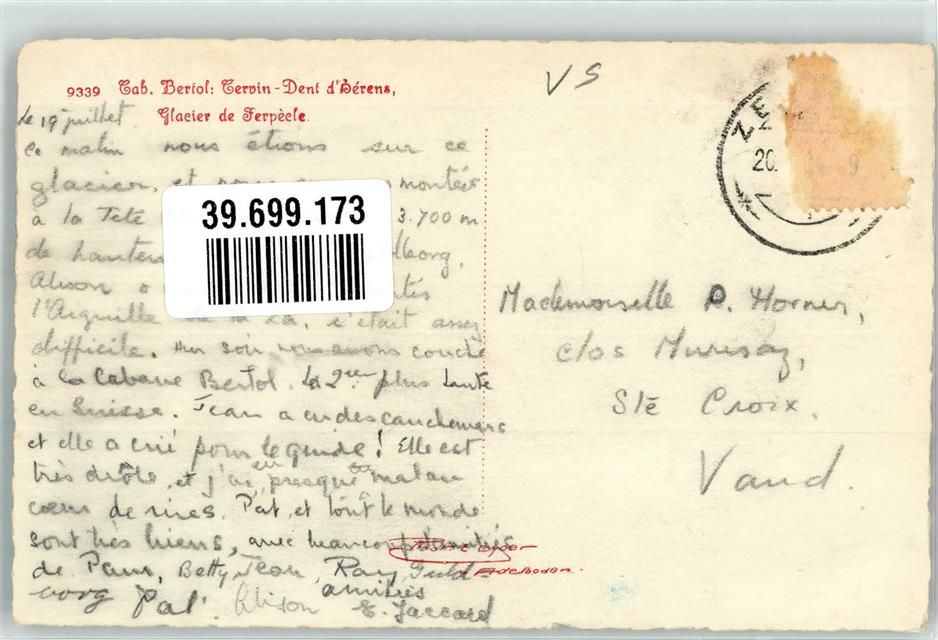 9339 Cab. Bertol: Cervin-Dent d'Hérens,
Glacier de Ferpècle.
Le 19 juillet
Ce matin nous étions sur ce
glacier, et montés
à la Tête 3.700 m
de
Alison
l'Aiguille de la Za, c'était assez
difficile. Hier soir nous avons couché
à la Cabane Bertol. La 2ième plus haute
en Suisse. Jean a eu des cauchemars
et elle a crié pour le guide! Elle est
très drôle, et j'ai eu presque mal au
cœur de rires. Pat et tout le monde
sont très biens, avec beaucoup d'amitiés
de Pam, Betty, Jean, Ray, Guld-
borg Pat. Alison amitiés
E. Jaccard
39.699.173
VS
ZE
20. 9
Mademoiselle P. Horner,
Clos Murisaz,
Ste Croix.
Vaud.
Adelboden.